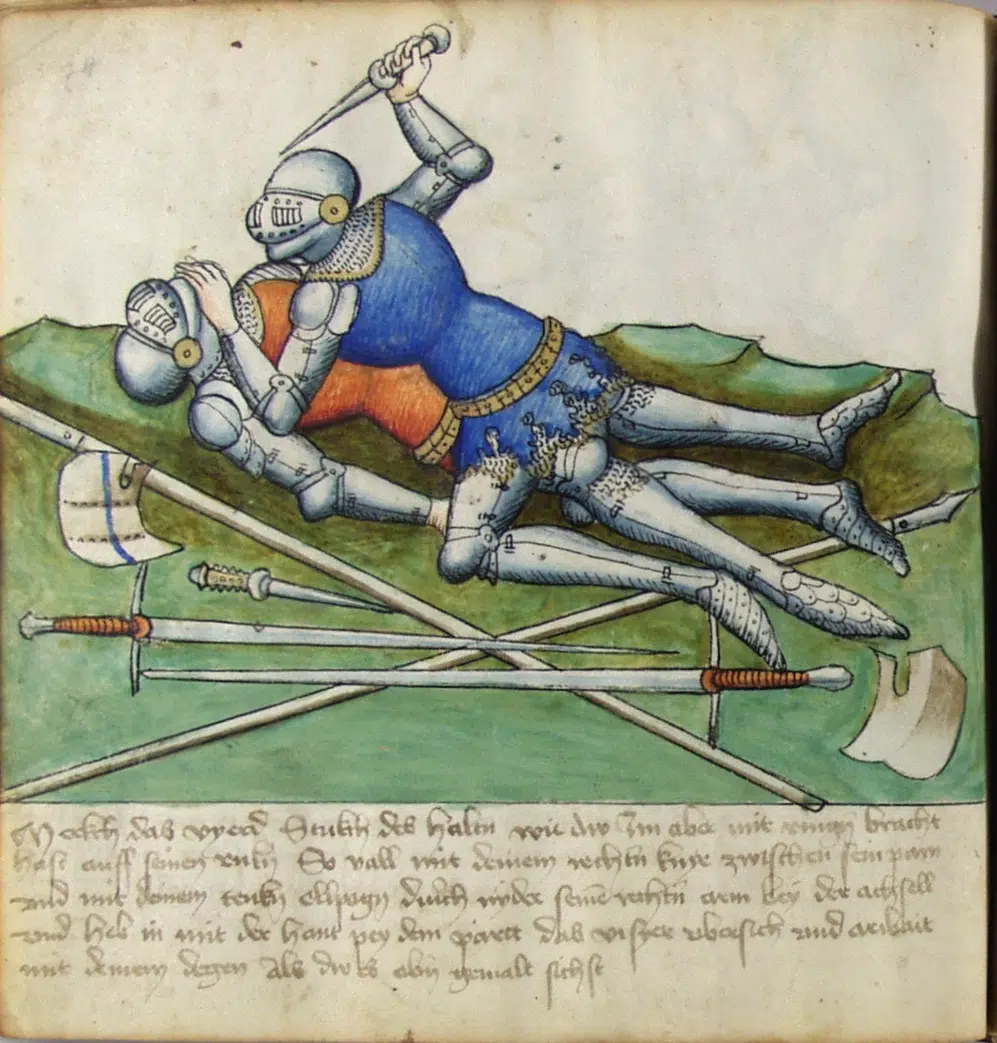 Merckh das vyerd Stukh des halten wie dw Im aber mit ringen bracht
hast auff seinen rukh So vall mit deinem rechtn knye zwischen sein pain
und mit deinem tenkn ellpogn druch nyder seinē rechtn arm bey der achsell
und heb in mit der hant pey dem partt das visyer ubersich und aribait
mit deinem degen Als dw es obn gemalt sichst